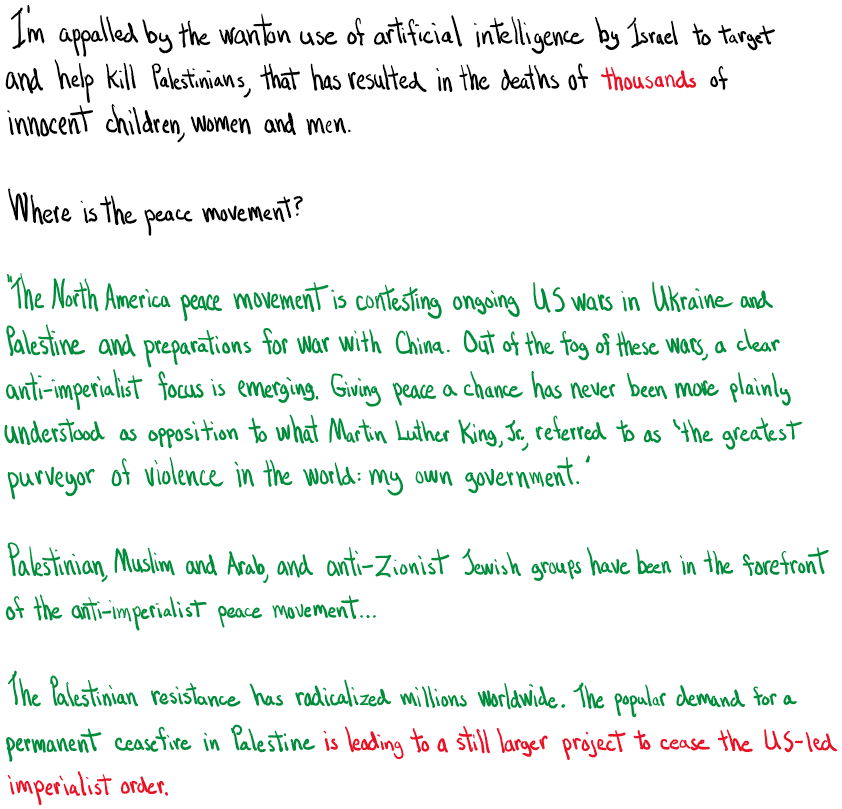 I'm appalled by the wanton use of artificial intelligence by Israel to target
and help kill Palestinians, that has resulted in the deaths of thousands of
innocent children, women and men.
Where is the peace movement?
"The North America peace movement is contesting ongoing US wars in Ukraine and
Palestine and preparations for war with China. Out of the fog of these wars, a clear
anti-imperialist focus is emerging. Giving peace a chance has never been more plainly
understood as opposition to what Martin Luther King, Jr., referred to as 'the greatest
purveyor of violence in the world: my own government.'
Palestinian, Muslim and Arab, and anti-Zionist Jewish groups have been in the forefront
of the anti-imperialist peace movement...
The Palestinian resistance has radicalized millions worldwide. The popular demand for a
permanent ceasefire in Palestine is leading to a still larger project to cease the US-led
imperialist order.